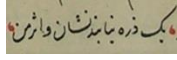 یک ذره نیابند نشان و اثر من